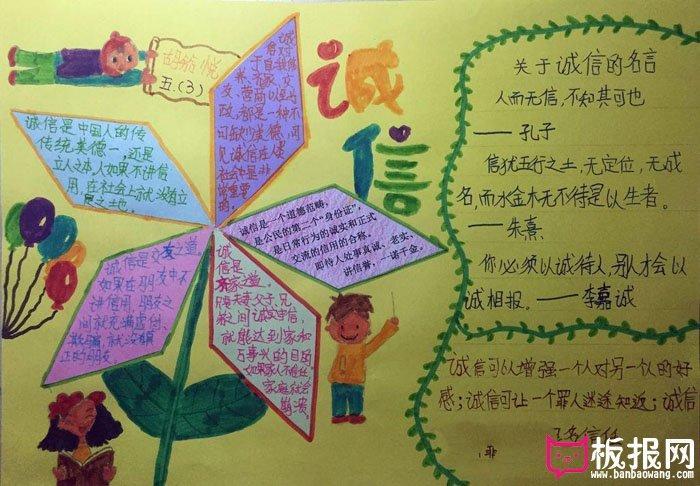 诚信
五.(3)
诚信是中国人的传
传统美德一,还是
立人之本,人如果不讲信
用,在社会上就没有立
足之地也。
诚信是一个道德范畴,
是公民的第二个“身份证”,
是日常行为的诚实和正式
交流的信用的合称。
即待人处事真诚、老实、
讲信誉、一诺千金。
诚信是交友之道
如果在朋友中不
讲信用,朋友之
间就充满虚伪、
欺骗,就没有真
正的朋友。
诚
信是
之道。
夫妻父子、兄
弟之间诚实守信,
就能达到家和
万事兴的目的
如果家人不信任
家庭就会
崩溃。
关于诚信的名言
人而无信,不知其可也
——孔子
信犹五行之土,无定位,无成
名,而水金木无不待是以生者。
——朱熹
你必须以诚待人,别人才会以
诚相报。——李嘉诚
诚信可以增强一个人对另一个人的好
感;诚信可让一个罪人迷途知返;诚信
板报网
www.banbaowang.com